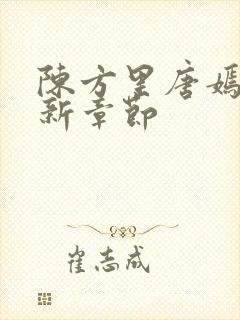 陳方罡唐嫣
新章節
崔志成